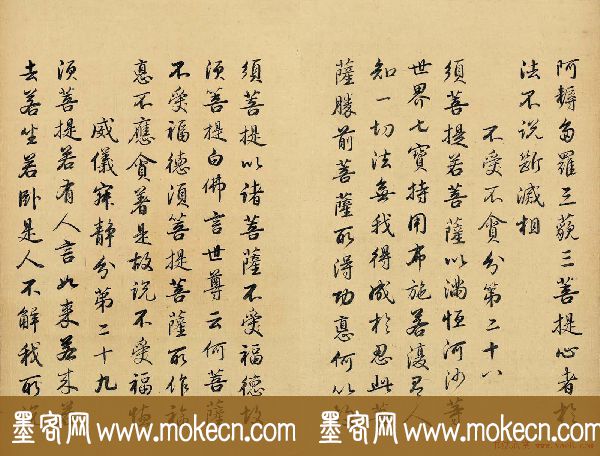 阿耨多羅三藐三菩提心者於
法不说斷滅相
不受不貪分第二十八
須菩提若菩薩以滿恒河沙等
世界七寶持用布施若復有人
知一切法無我得成於忍此菩
薩勝前菩薩所得功德何以故
須菩提以諸菩薩不受福德故
須菩提白佛言世尊云何菩薩
不受福德須菩提菩薩所作福
德不應貪著是故説不受福德
威儀寂静分第二十九
須菩提若有人言如来若来若
去若坐若卧是人不解我所
墨客网 www.mokecn.com 墨客网 www.mokecn.com